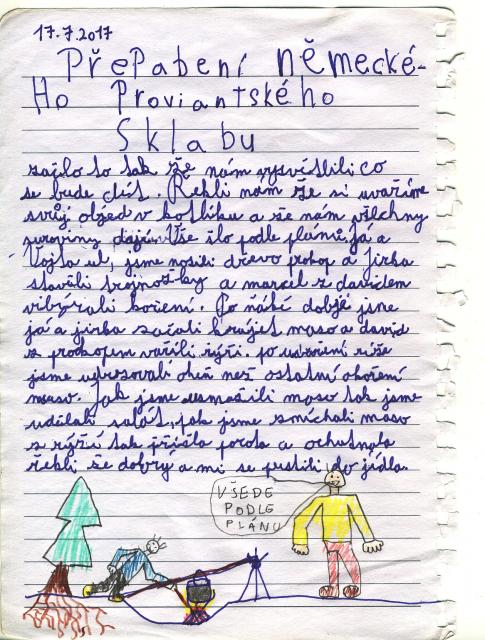 17.7.2017
Přepabení německé-
ho Proviantského
Sklabu
začlo to tak že nám vysvětlili co
se bude dít. Řekli nám že si uvaříme
svůj oběd v kotlíku a že nám všechny
suroviny dají. Vše šlo podle plánu. já a
Vojta ul, jsme nosili dřevo prokop a jirka
stavěli trojnožky a marcel z davidem
vibýrali koření. Po ňáké dobje jsme
já a jirka začali krájet maso a david
z prokopem vařili rýži. po uvaření rýže
jsme udrsovali oheň než ostatní okoření
maso. Jak jsme usmašili maso tak jsme
udělali salát, jak jsme smíchali maso
z rýží tak přišla porota a ochutnala
řekli že dobrý a mi se pustili do jídla.
VŠEDE
PODLE
PLÁNU